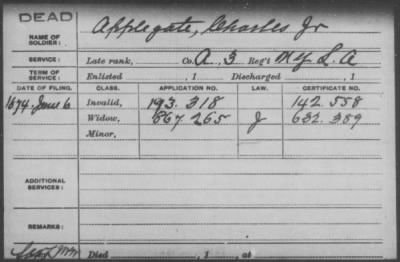 DEAD
NAME OF SOLDIER: Applegate, Charles Jr
SERVICE: Late rank, Co. A, 3 Reg't N.Y. L. A
TERM OF SERVICE: Enlisted , 1 Discharged , 1
DATE OF FILING. CLASS. APPLICATION NO. LAW. CERTIFICATE NO.
1874, June 6 Invalid, 193.318 142.558
Widow, 667.265 J 632.389
Minor,
ADDITIONAL SERVICES:
REMARKS:
Died , 1 , at